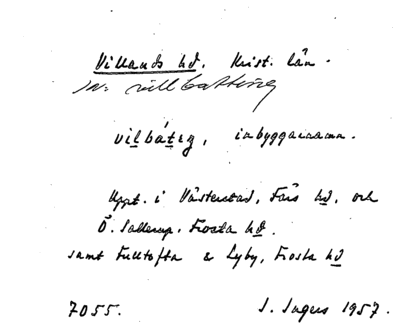 Villands hd. Krist. län.
In: villbatting
vilbátıg, inbyggarnamn.
Uppt. i Västerstad, Färs hd, och
Ö. Sallerup, Frosta hd.
samt Fulltofta & Lyby, Frosta hd
7055. I. Ingers 1957.